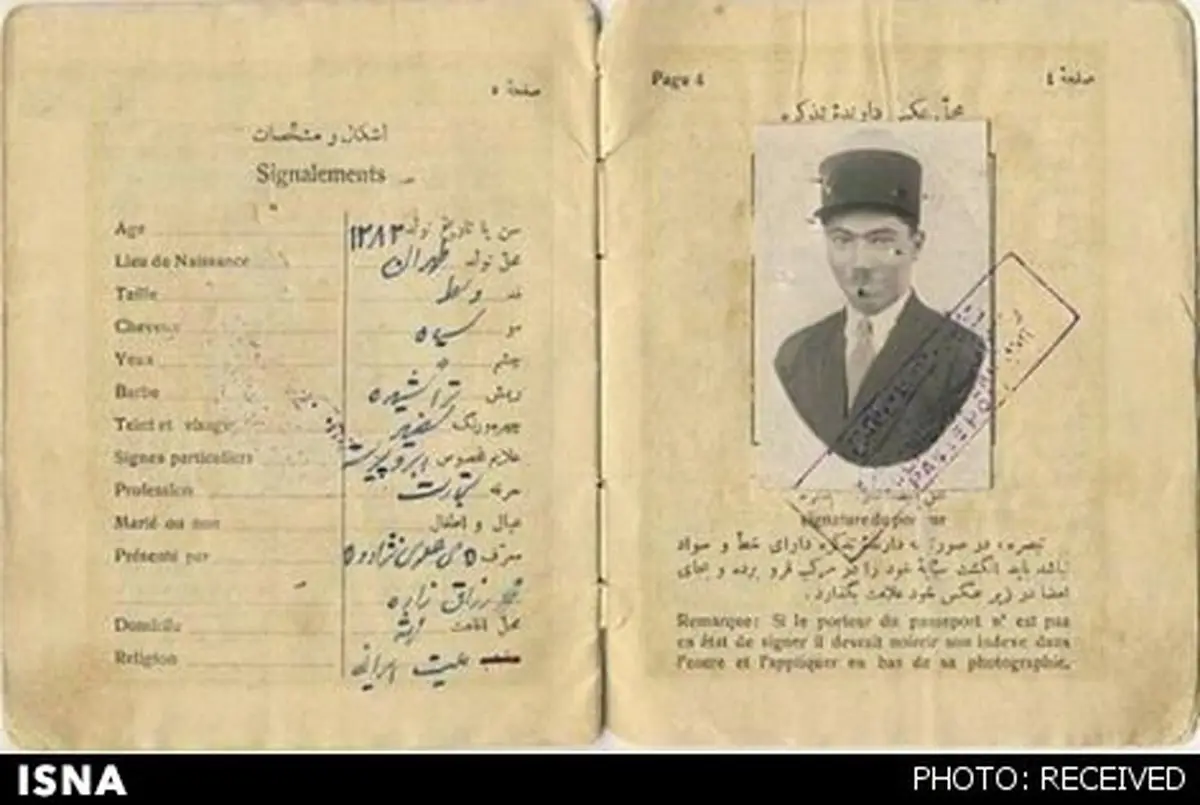 صفحهٔ ٥
اشکال و مشخّصات
Signalements
Age سن یا تاریخ تولد ۱۲۸۳
Lieu de Naissance محل تولد طهران
Taille قد وسط
Cheveux مو سیاه
Yeux چشم
Barbe ریش تراشیده
Teint et visage چهره و رنگ سفید
Signes particuliers علائم مخصوص
Profession حرفه تجارت
Marié ou non عیال و اطفال
Présenté par معرّف
زاده
Domicile محل اقامت
Religion ملیت ایرانی
Page 4
صفحهٔ ٤
محلّ عکس دارندهٔ تذکره
signature du porteur
تبصره، در صورتیکه دارندهٔ تذکره دارای خط و سواد
نباشد باید انگشت سبّابهٔ خود را در مرکب فرو برده و بجای
امضا در زیر عکس خود علامت بگذارد.
Remarque: Si le porteur du passeport n' est pas
en état de signer il devrait noircir son indexe dans
l'encre et l'appliquer en bas de sa photographie.
ISNA
PHOTO: RECEIVED